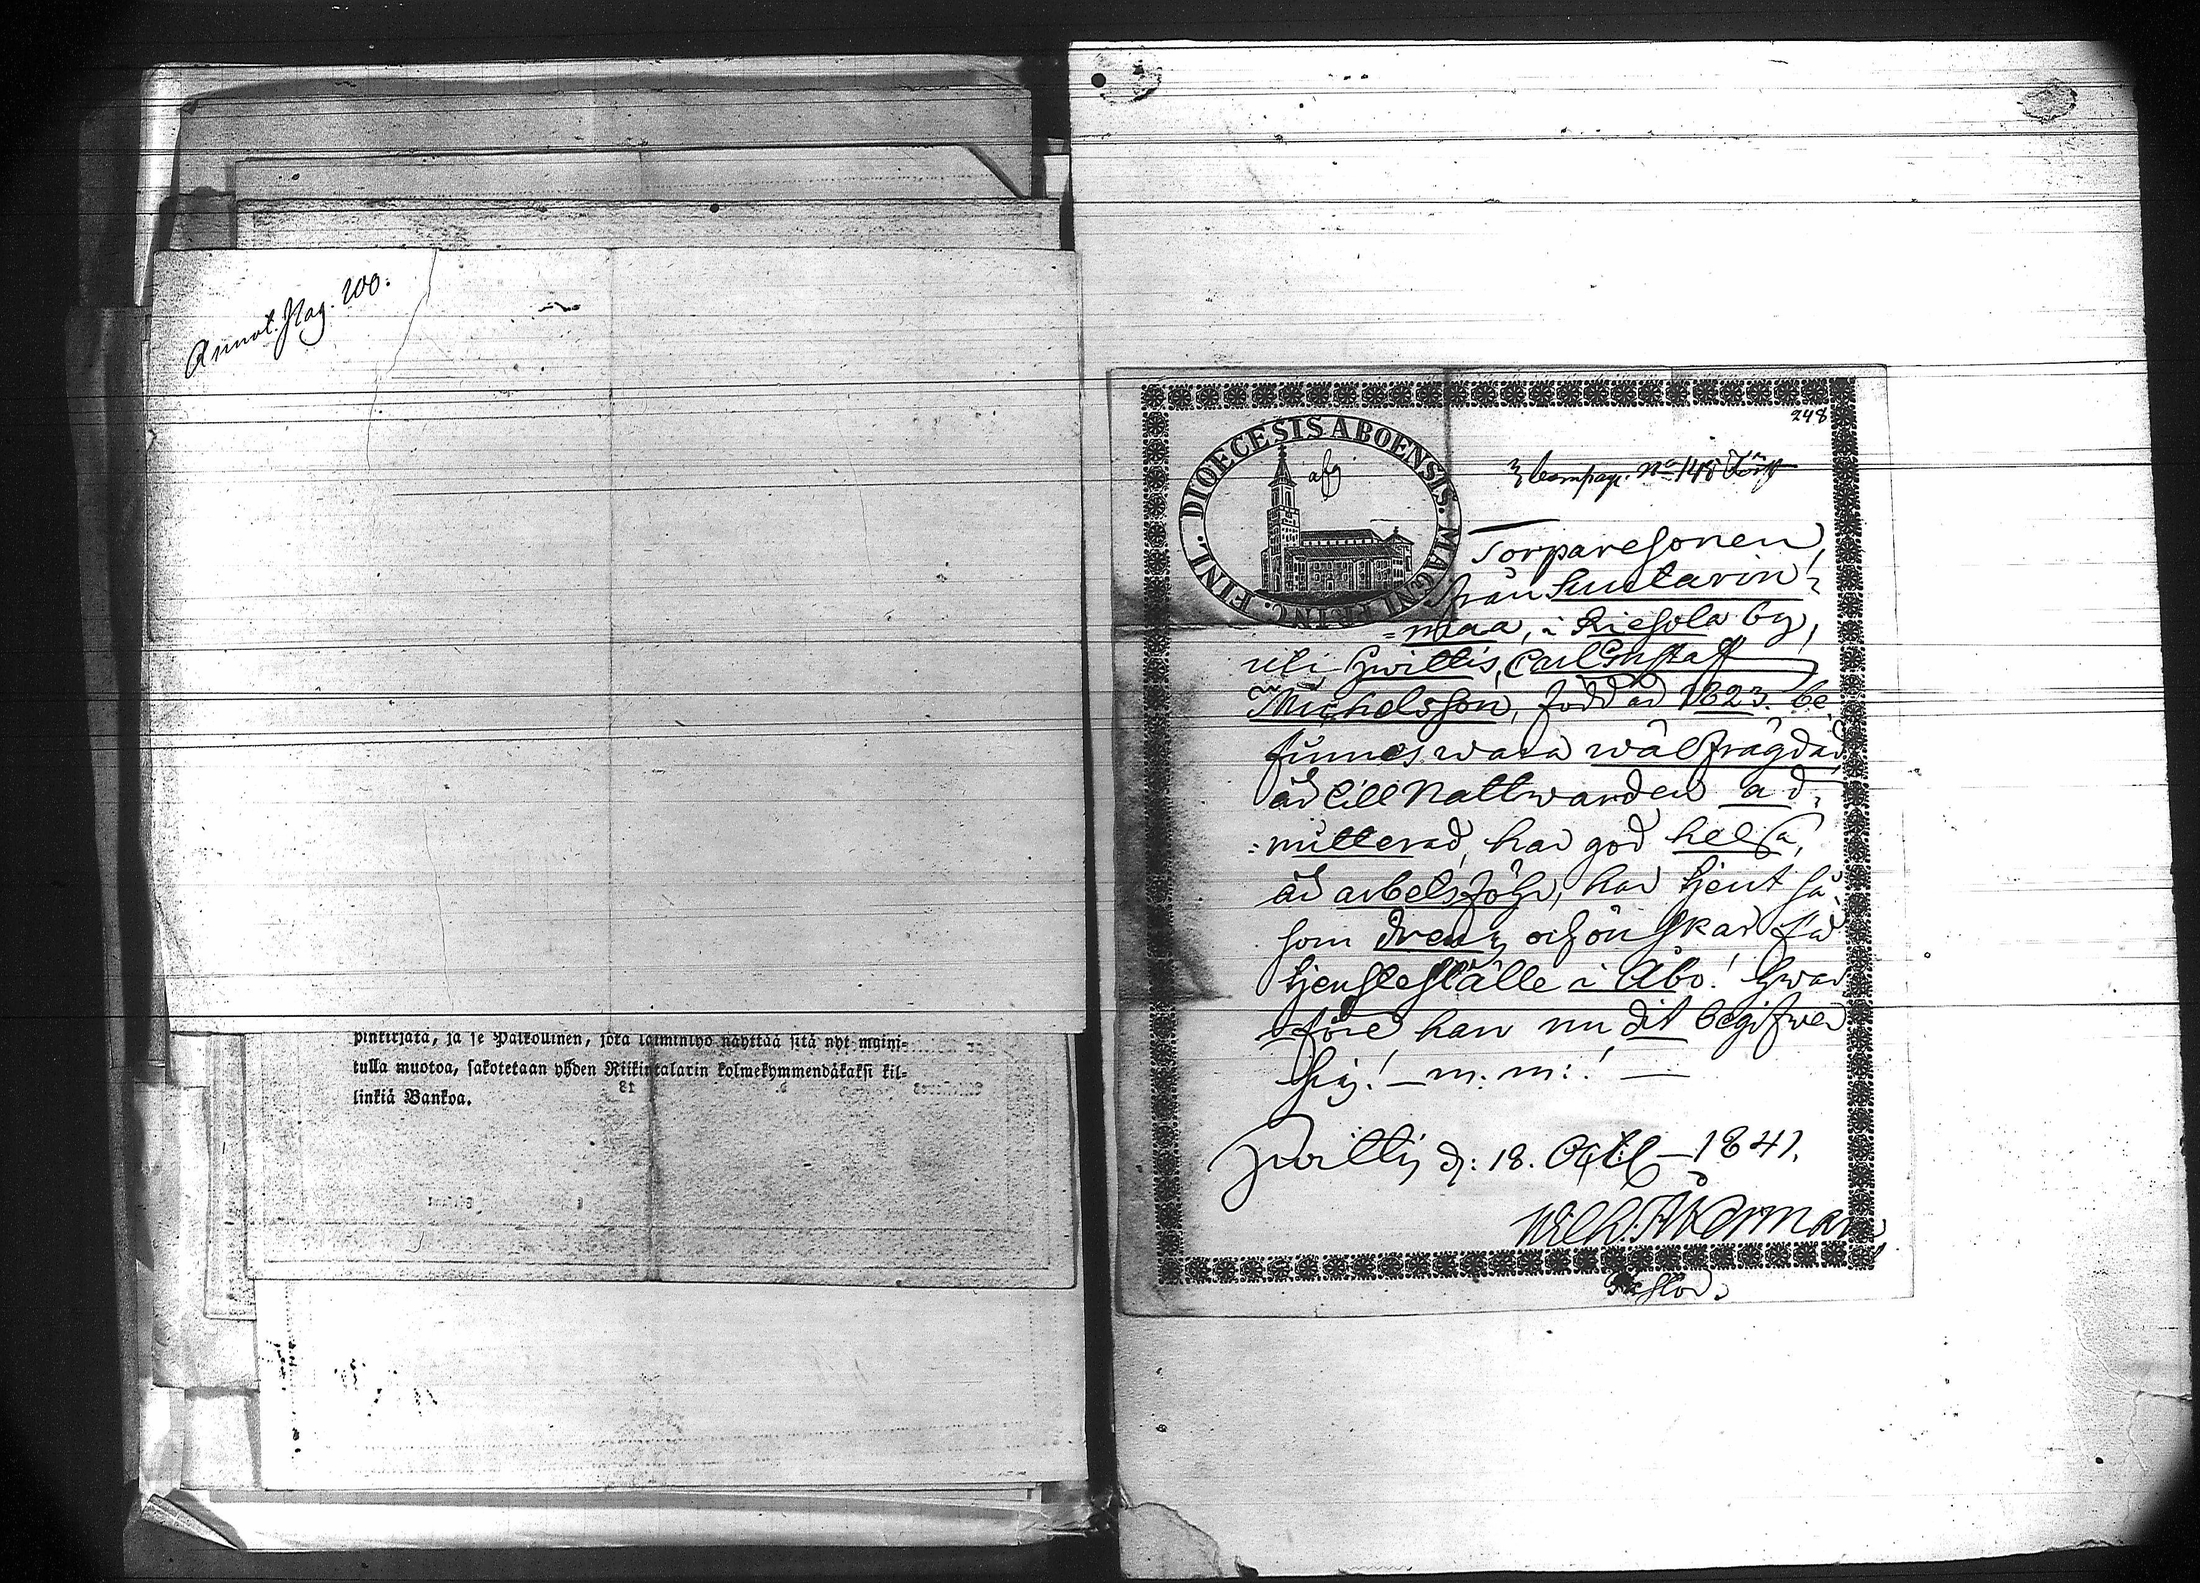 Annot. Pag. 200.
pinkirjata, ja se Palkollinen, joka laiminlyö näyttää sitä nyt maini-
tulla muotoa, sakotetaan yhden Riikintalarin kolmekymmendäkaksi kil-
linkiä Bankoa.
248
DIOECESIS ABOENSIS. MAGNI PRINC. FINL.
afg
Compagn. No 148
Torparesonen,
från Suutarin-
=maa, i Riesola by,
uti Hvittis, Carl Gustaf
Michelsson, född år 1823. be-
finnes wara wälfrägdad,
är till Nattwarden ad-
=mitterad, har god helsa,
är arbetsför, har tjent så-
som dreng och önskar få
tjensteställe i Åbo! hwar
före han nu dit begifver
sig! — m: m:! —
Hvittis d: 18. Octb — 1841.
Wilh. Åkerman
Pastor.